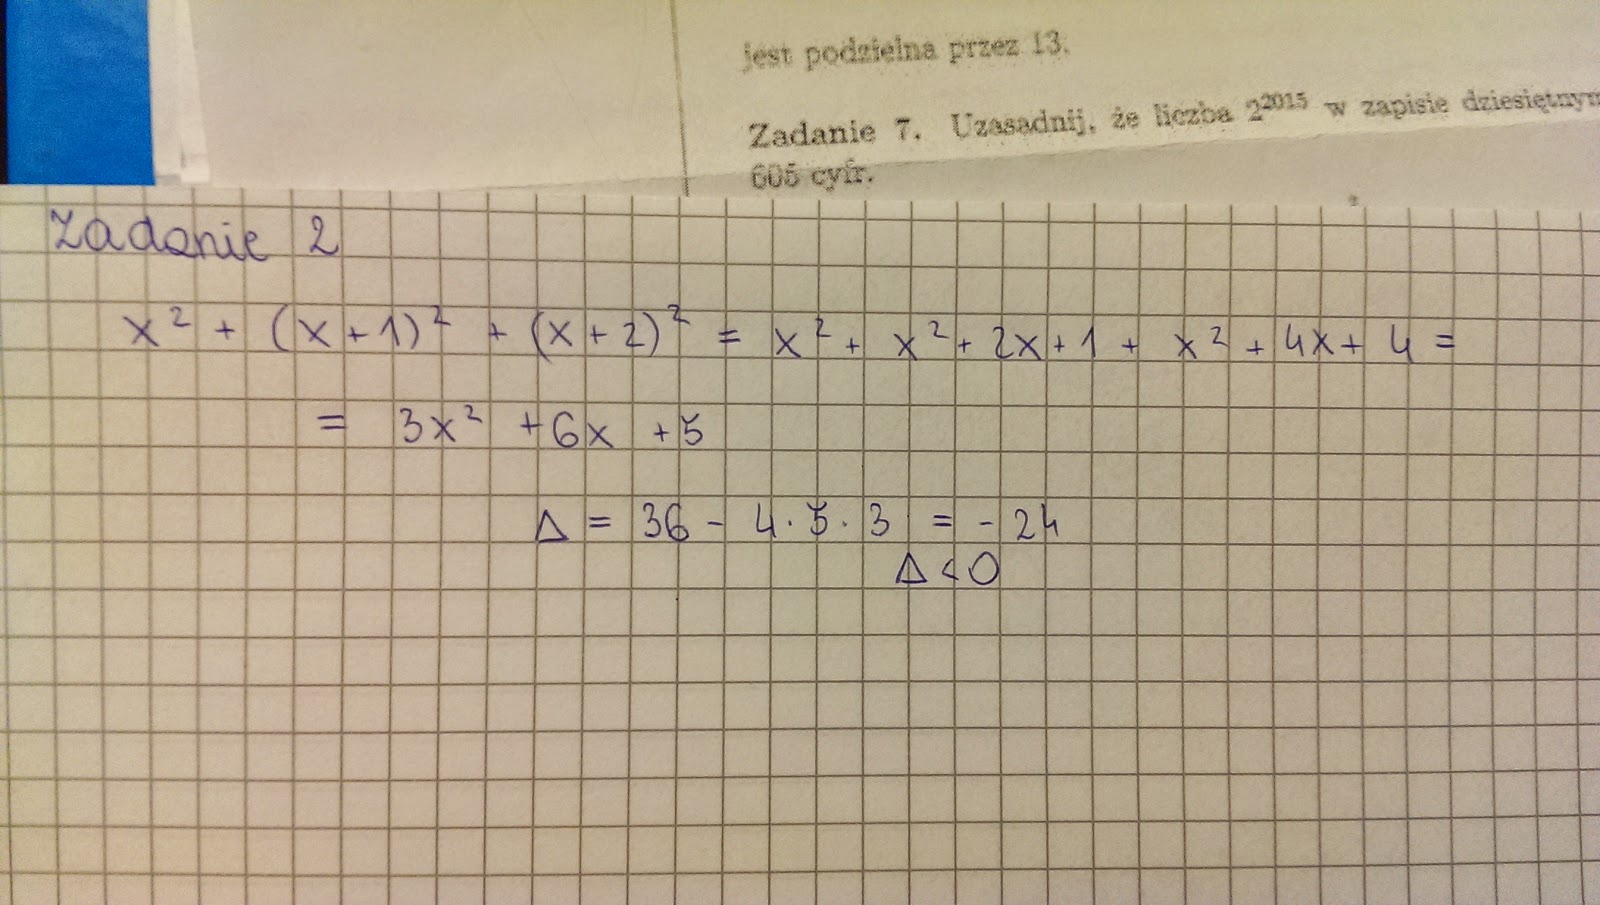 jest podzielna przez 13.
Zadanie 7. Uzasadnij, że liczba 2²⁰¹⁵ w zapisie dziesiętnym
605 cyfr.
Zadanie 2
x² + (x+1)² + (x+2)² = x² + x² + 2x + 1 + x² + 4x + 4 =
= 3x² + 6x + 5
Δ = 36 - 4·5·3 = -24
Δ < 0